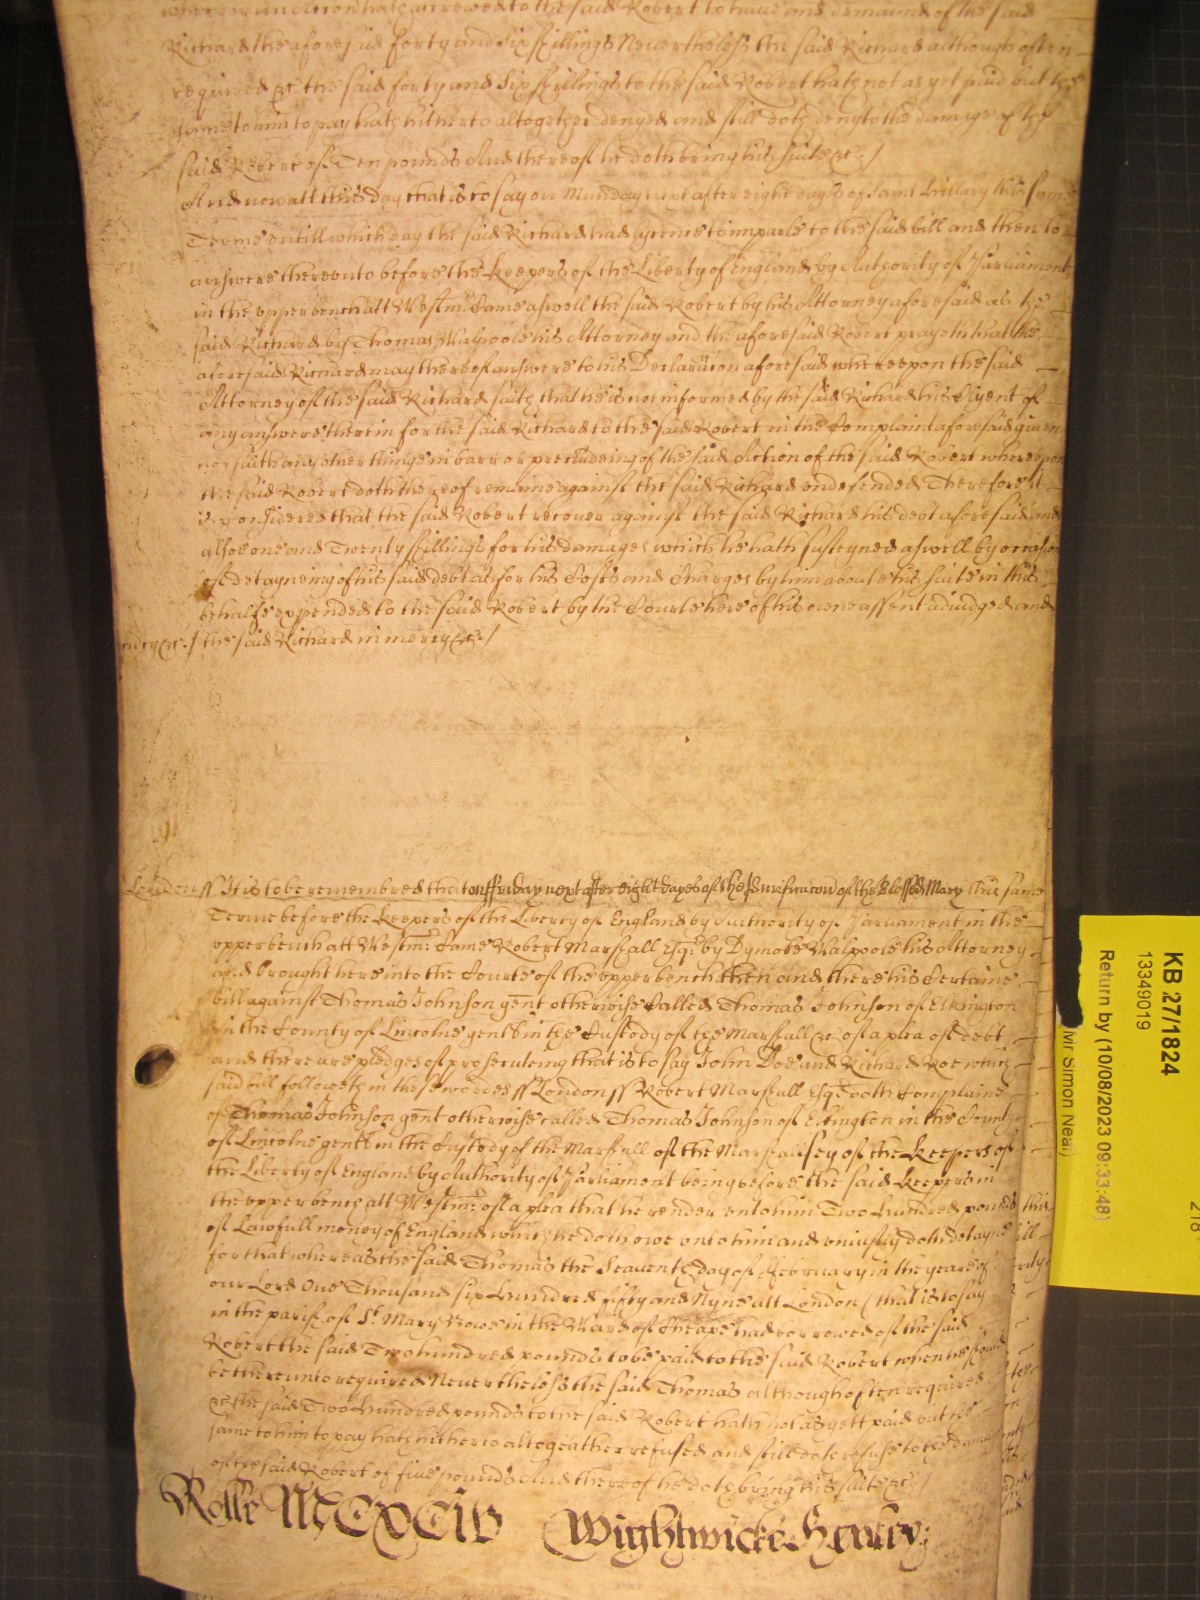 accrewed to the said Robert to have and demaund of the said
Richard the aforesaid forty and six shillings Neverthelesse the said Richard although often
required &c the said forty and six shillings to the said Robert hath not as yet paid but the
same to him to pay hath hitherto altogether denyed and still doth deny to the damage of the
said Robert of Ten pounds And thereof he doth bring his suite &c /
And now att this day that is to say on Munday next after eight dayes of Saint Hillary this same
Terme untill which day the said Richard had lycence to imparle to the said bill and then to
answere thereunto before the Keepers of the Liberty of England by Authority of Parliament
in the upper bench att Westmr. Came aswell the said Robert by his Attorney aforesaid as the
said Richard by Thomas Walpoole his Attorney and the aforesaid Robert prayeth that the
aforesaid Richard may thereof answere to his Declaracon aforesaid whereupon the said
Attorney of the said Richard saith that he is not informed by the said Richard his Clyent of
any answere therein for the said Richard to the said Robert in the Complaint aforesaid given
nor saith any other thinge in barr or precludeing of the said Action of the said Robert whereupon
the said Robert doth thereof remaine against the said Richard undefended Therefore it
is considered that the said Robert recover against the said Richard his debt aforesaid and
alsoe one and Twenty shillings for his damages which he hath susteyned aswell by occasion
of detayneing of his said debt as for his Costs and Charges by him about his suite in this
behalfe expended to the said Robert by the Courte here of his owne assent adiudged and
mercy &c / the said Richard in mercy &c /
London ss It is to be remembred that on ffriday next after eight dayes of the Purificacon of the Blessed Mary this same
Terme before the Keepers of the Liberty of England by Authority of Parliament in the
upper bench att Westmr. Came Robert Marshall Esqr. by Dymoke Walpoole his Attorney
and brought here into the Courte of the upper bench then and there his Certaine
bill against Thomas Johnson gent otherwise Called Thomas Johnson of Elkington
in the County of Lincolne gent in the Custody of the Marshall &c of a plea of debt
and there are pledges of prosecuteing that is to say John Doe and Richard Roe which
said bill followeth in these wordes ss London ss Robert Marshall Esqr doth Complaine
of Thomas Johnson gent otherwise called Thomas Johnson of Elkington in the County
of Lincolne gent in the Custody of the Marshall of the Marshalsey of the Keepers of
the Liberty of England by Authority of Parliament being before the said Keepers in
the upper bench att Westmr. of a plea that he render unto him Two hundred pounds
of Lawfull money of England which he doth owe unto him and uniustly doth detayne
for that whereas the said Thomas the Seaventh day of February in the yeare of
our Lord One Thousand six hundred fifty and Nyne att London (that is to say
in the parish of St. Mary Bowe in the Ward of Cheape had borrowed of the said
Robert the said Two hundred pounds to be paid to the said Robert when he should
be thereunto required Neverthelesse the said Thomas although often required
&c the said Two hundred pounds to the said Robert hath not as yett paid but the
same to him to pay hath hitherto altogeather refused and still doth refuse to the damage
of the said Robert of five pounds And thereof he doth bring his suite &c
Rolle MCXCIV Wightwicke Henley:
KB 27/1824
13349019
Return by (10/08/2023 09:33:48)
Simon Neal)